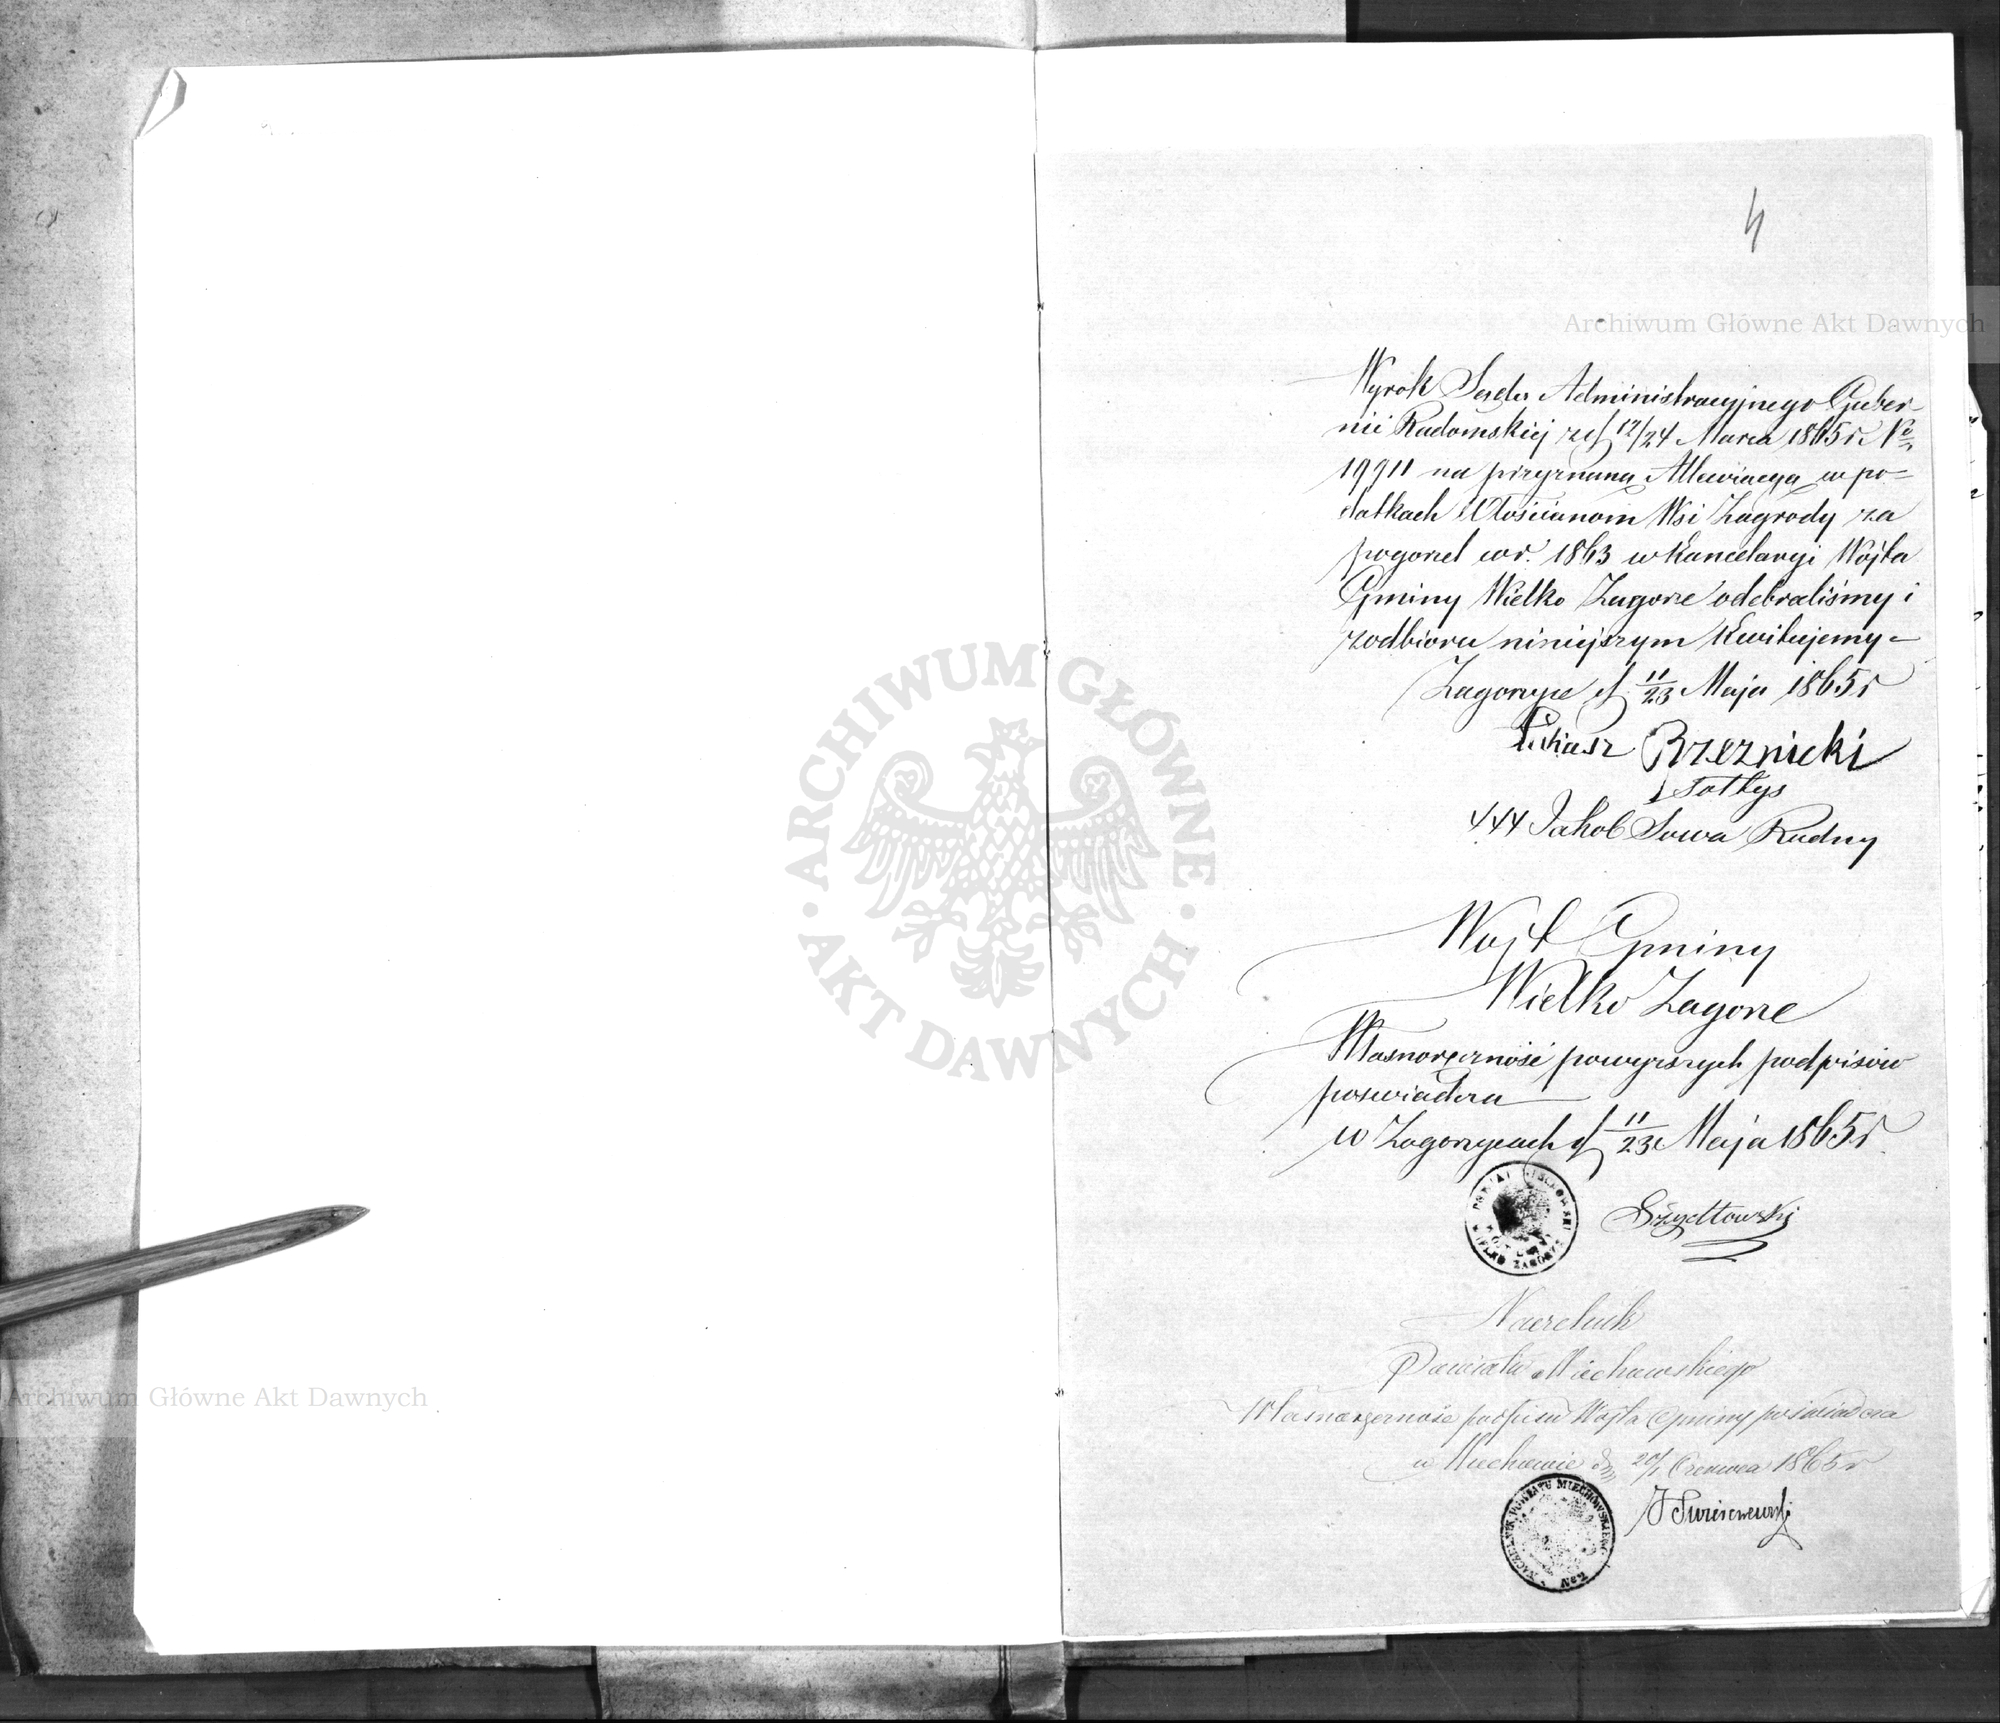 4
Archiwum Główne Akt Dawnych
Wyrok Sądu Administracyjnego Guber-
nii Radomskiej z d 12/24 Marca 1865 r. No
19911 na przyznaną Allewiacyą w po-
datkach Włościanom Wsi Zagrody za
pogorzel w r. 1863 w Kancelaryi Wójta
Gminy Wielko Zagorze odebraliśmy i
z odbioru niniejszym Kwitujemy -
Zagorzyce d. 11/23 Maja 1865 r
Łukasz Rzeznicki
Sołtys
+++ Jakob Sowa Radny
ARCHIWUM GŁÓWNE
· AKT DAWNYCH ·
Wojt Gminy
Wielko Zagorze
Własnoręczność powyższych podpisów
poswiadcza
w Zagorzycach d 11/23 Maja 1865 r.
Szydłowski
Naczelnik
Powiatu Miechowskiego
Własnoręczność podpisu Wojta Gminy poświadcza
w Miechowie dn 20/1 Czerwca 1865 r
NACZELNIK POWIATU MIECHOWSKIEGO
Archiwum Główne Akt Dawnych